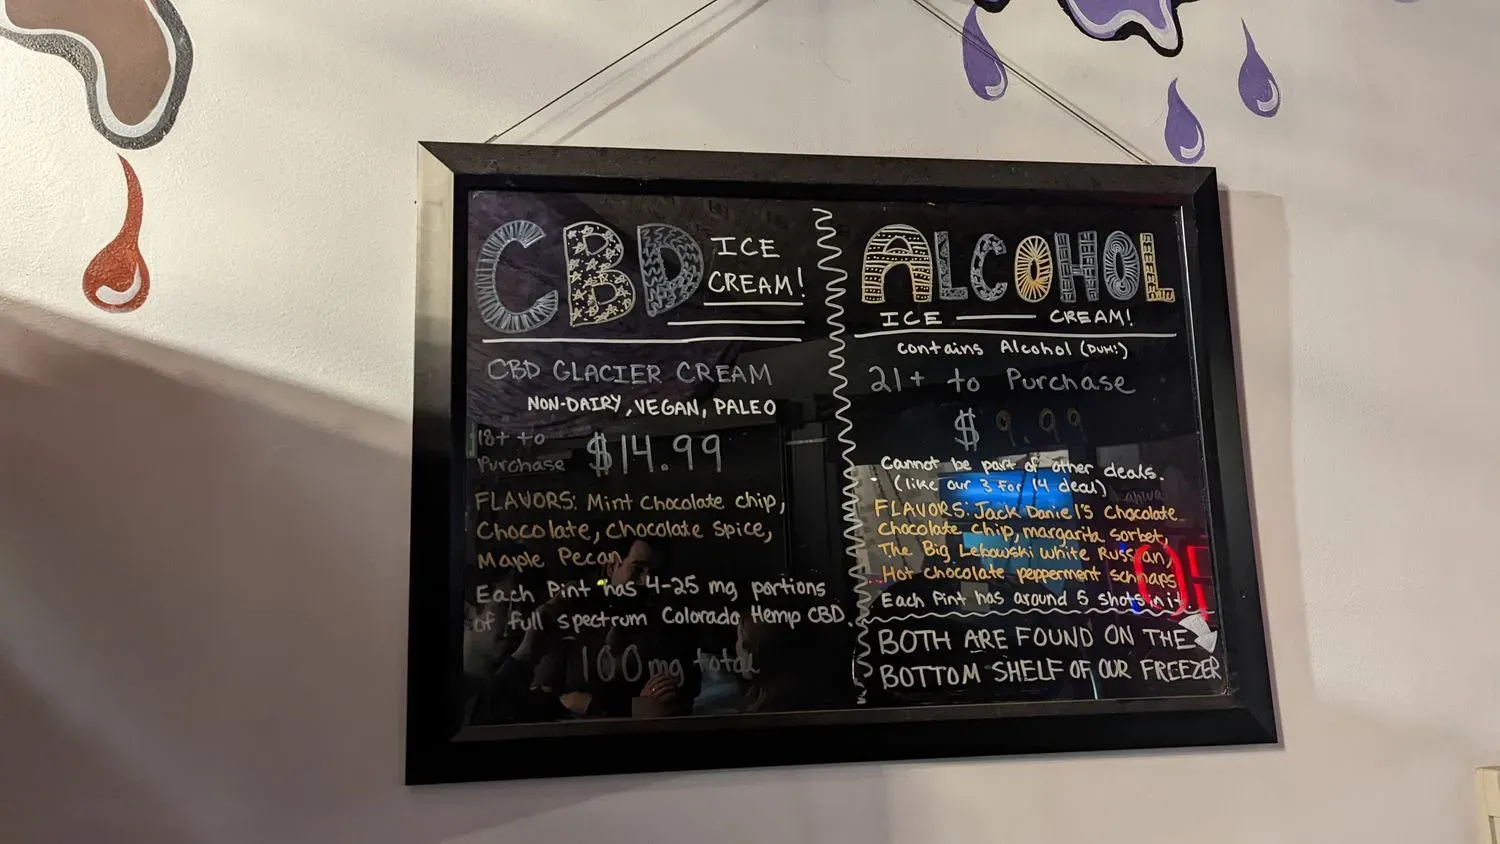 CBD ICE
CREAM!
CBD GLACIER CREAM
NON-DAIRY, VEGAN, PALEO
18+ to
Purchase $14.99
FLAVORS: Mint Chocolate chip,
Chocolate, Chocolate Spice,
Maple Pecan
Each Pint has 4-25 mg portions
of full spectrum Colorado Hemp CBD.
100mg total
ALCOHOL
ICE CREAM!
contains Alcohol (DUH!)
21+ to Purchase
$9.99
Cannot be part of other deals.
(like our 3 for 14 deal)
FLAVORS: Jack Daniel's Chocolate
Chocolate Chip, margarita sorbet,
The Big Lebowski White Russian,
Hot chocolate pepperment schnaps
Each Pint has around 5 shots in it.
BOTH ARE FOUND ON THE
BOTTOM SHELF OF OUR FREEZER